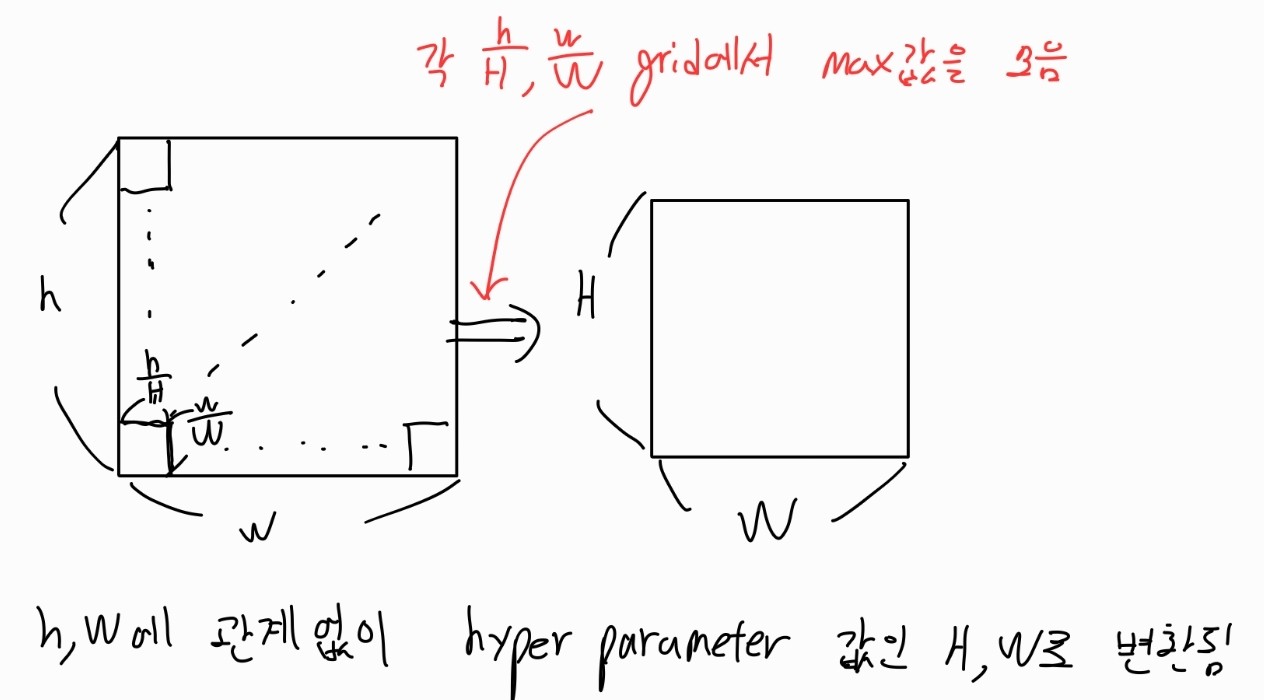 각 h/H, w/W grid에서 max값을 모음
h
H
h/H
w/W
w
W
h, w에 관계없이 hyper parameter 값인 H, W로 변환됨